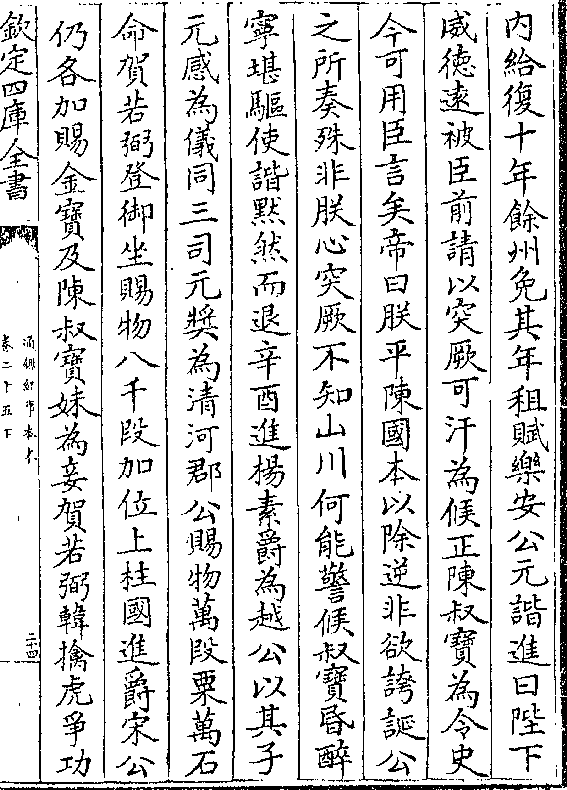 内給復十年餘州免其年租賦樂安公元諧進曰陛下
威徳逺被臣前請以突厥可汗為候正陳叔寶為令史
今可用臣言矣帝曰朕平陳國本以除逆非欲誇誕公
之所奏殊非朕心突厥不知山川何能警候叔寶昏醉
寧堪驅使諧黙然而退辛酉進楊素爵為越公以其子
元感為儀同三司元奬為清河郡公賜物萬段粟萬石
命賀若弼登御坐賜物八千段加位上柱國進爵宋公
仍各加賜金寶及陳叔寶妹為妾賀若弼韓擒虎爭功
欽定四庫全書
通鑑紀事本末
卷二十五下
二十四